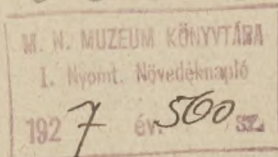 M. N. MUZEUM KÖNYVTÁRA
I. Nyomt. Növedéknapló
1927 év. 560 sz.